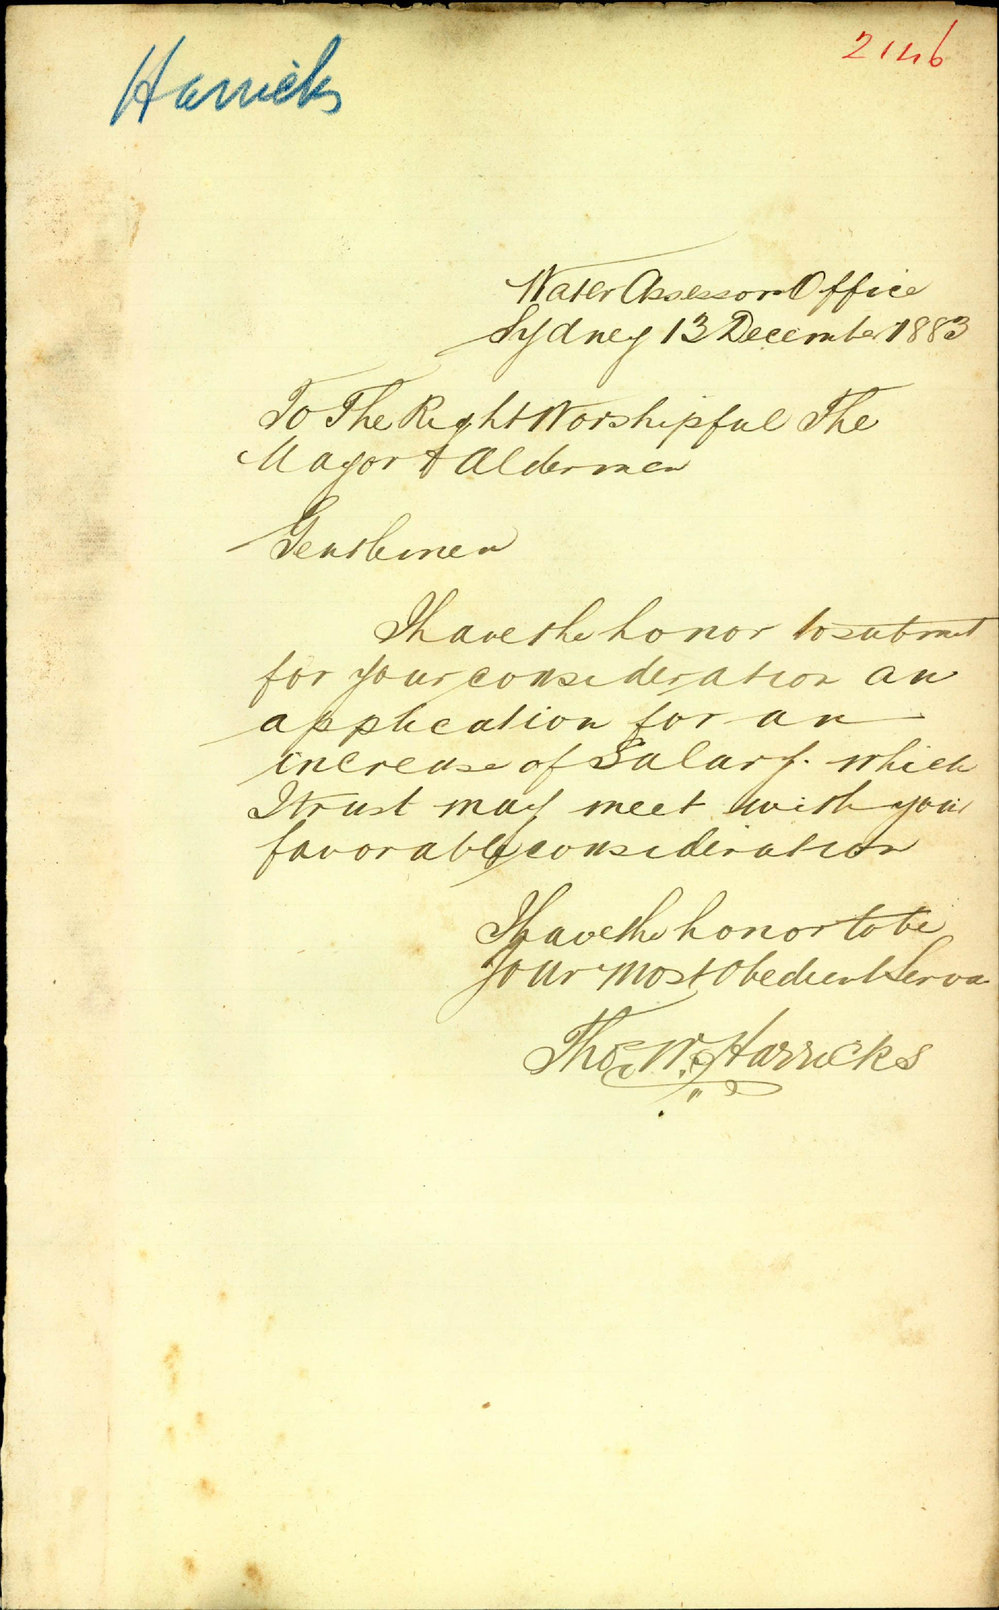 Harricks
2146
Water Assessors Office
Sydney 13 December 1883
To The Right Worshipful The
Mayor & Aldermen
Gentlemen
I have the honor to submit
for your consideration an
application for an
increase of Salary. which
I trust may meet with your
favorable consideration
I have the honor to be
Your most obedient Serva
Thos W. Harricks